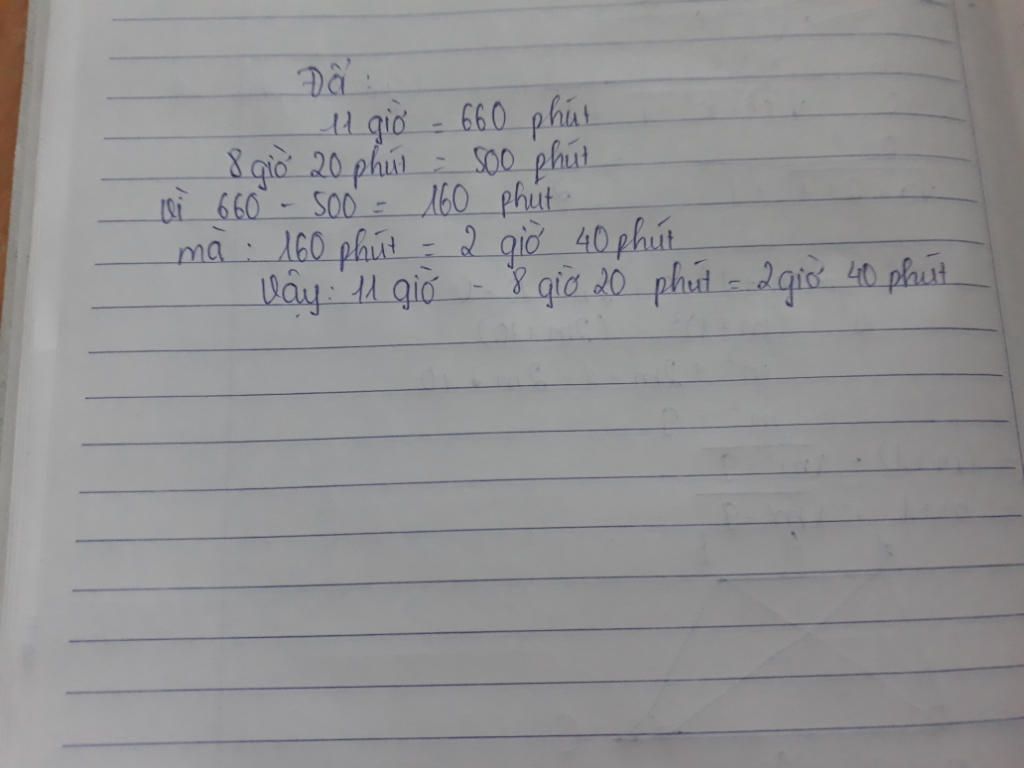 Đấ:
11 giờ = 660 phút
8 giờ 20 phút = 500 phút
vì 660 - 500 = 160 phút
mà: 160 phút = 2 giờ 40 phút
Vậy: 11 giờ - 8 giờ 20 phút = 2 giờ 40 phút